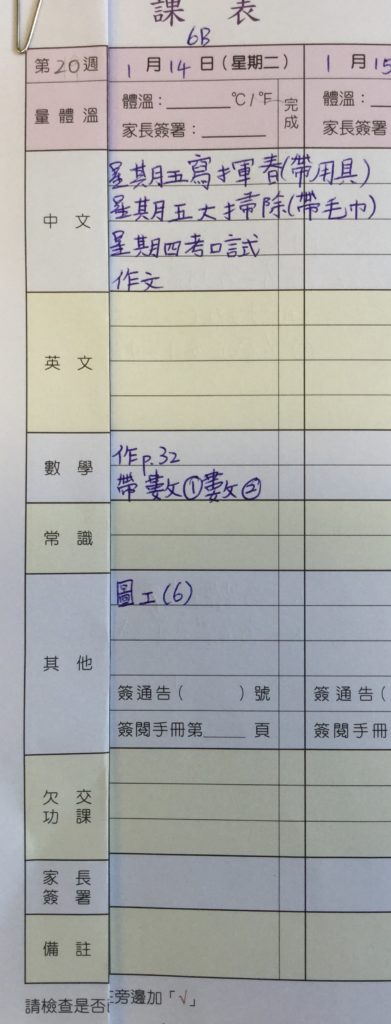 課 表
6B
第20週 1月14日(星期二) 1月15
量體溫 體溫：______ °C/°F 完成 體溫：
家長簽署：______ 家長簽署：
中文 星期五寫揮春(帶用具)
星期五大掃除(帶毛巾)
星期四考口試
作文
英文
數學 作p.32
帶數①數②
常識
其他 圖工(6)
簽通告( )號 簽通告(
簽閱手冊第____頁 簽閱手冊
欠交功課
家長簽署
備註
請檢查是否 旁邊加「√」